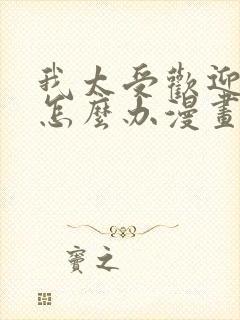 我太受歡迎
怎麼办漫畫
寶之